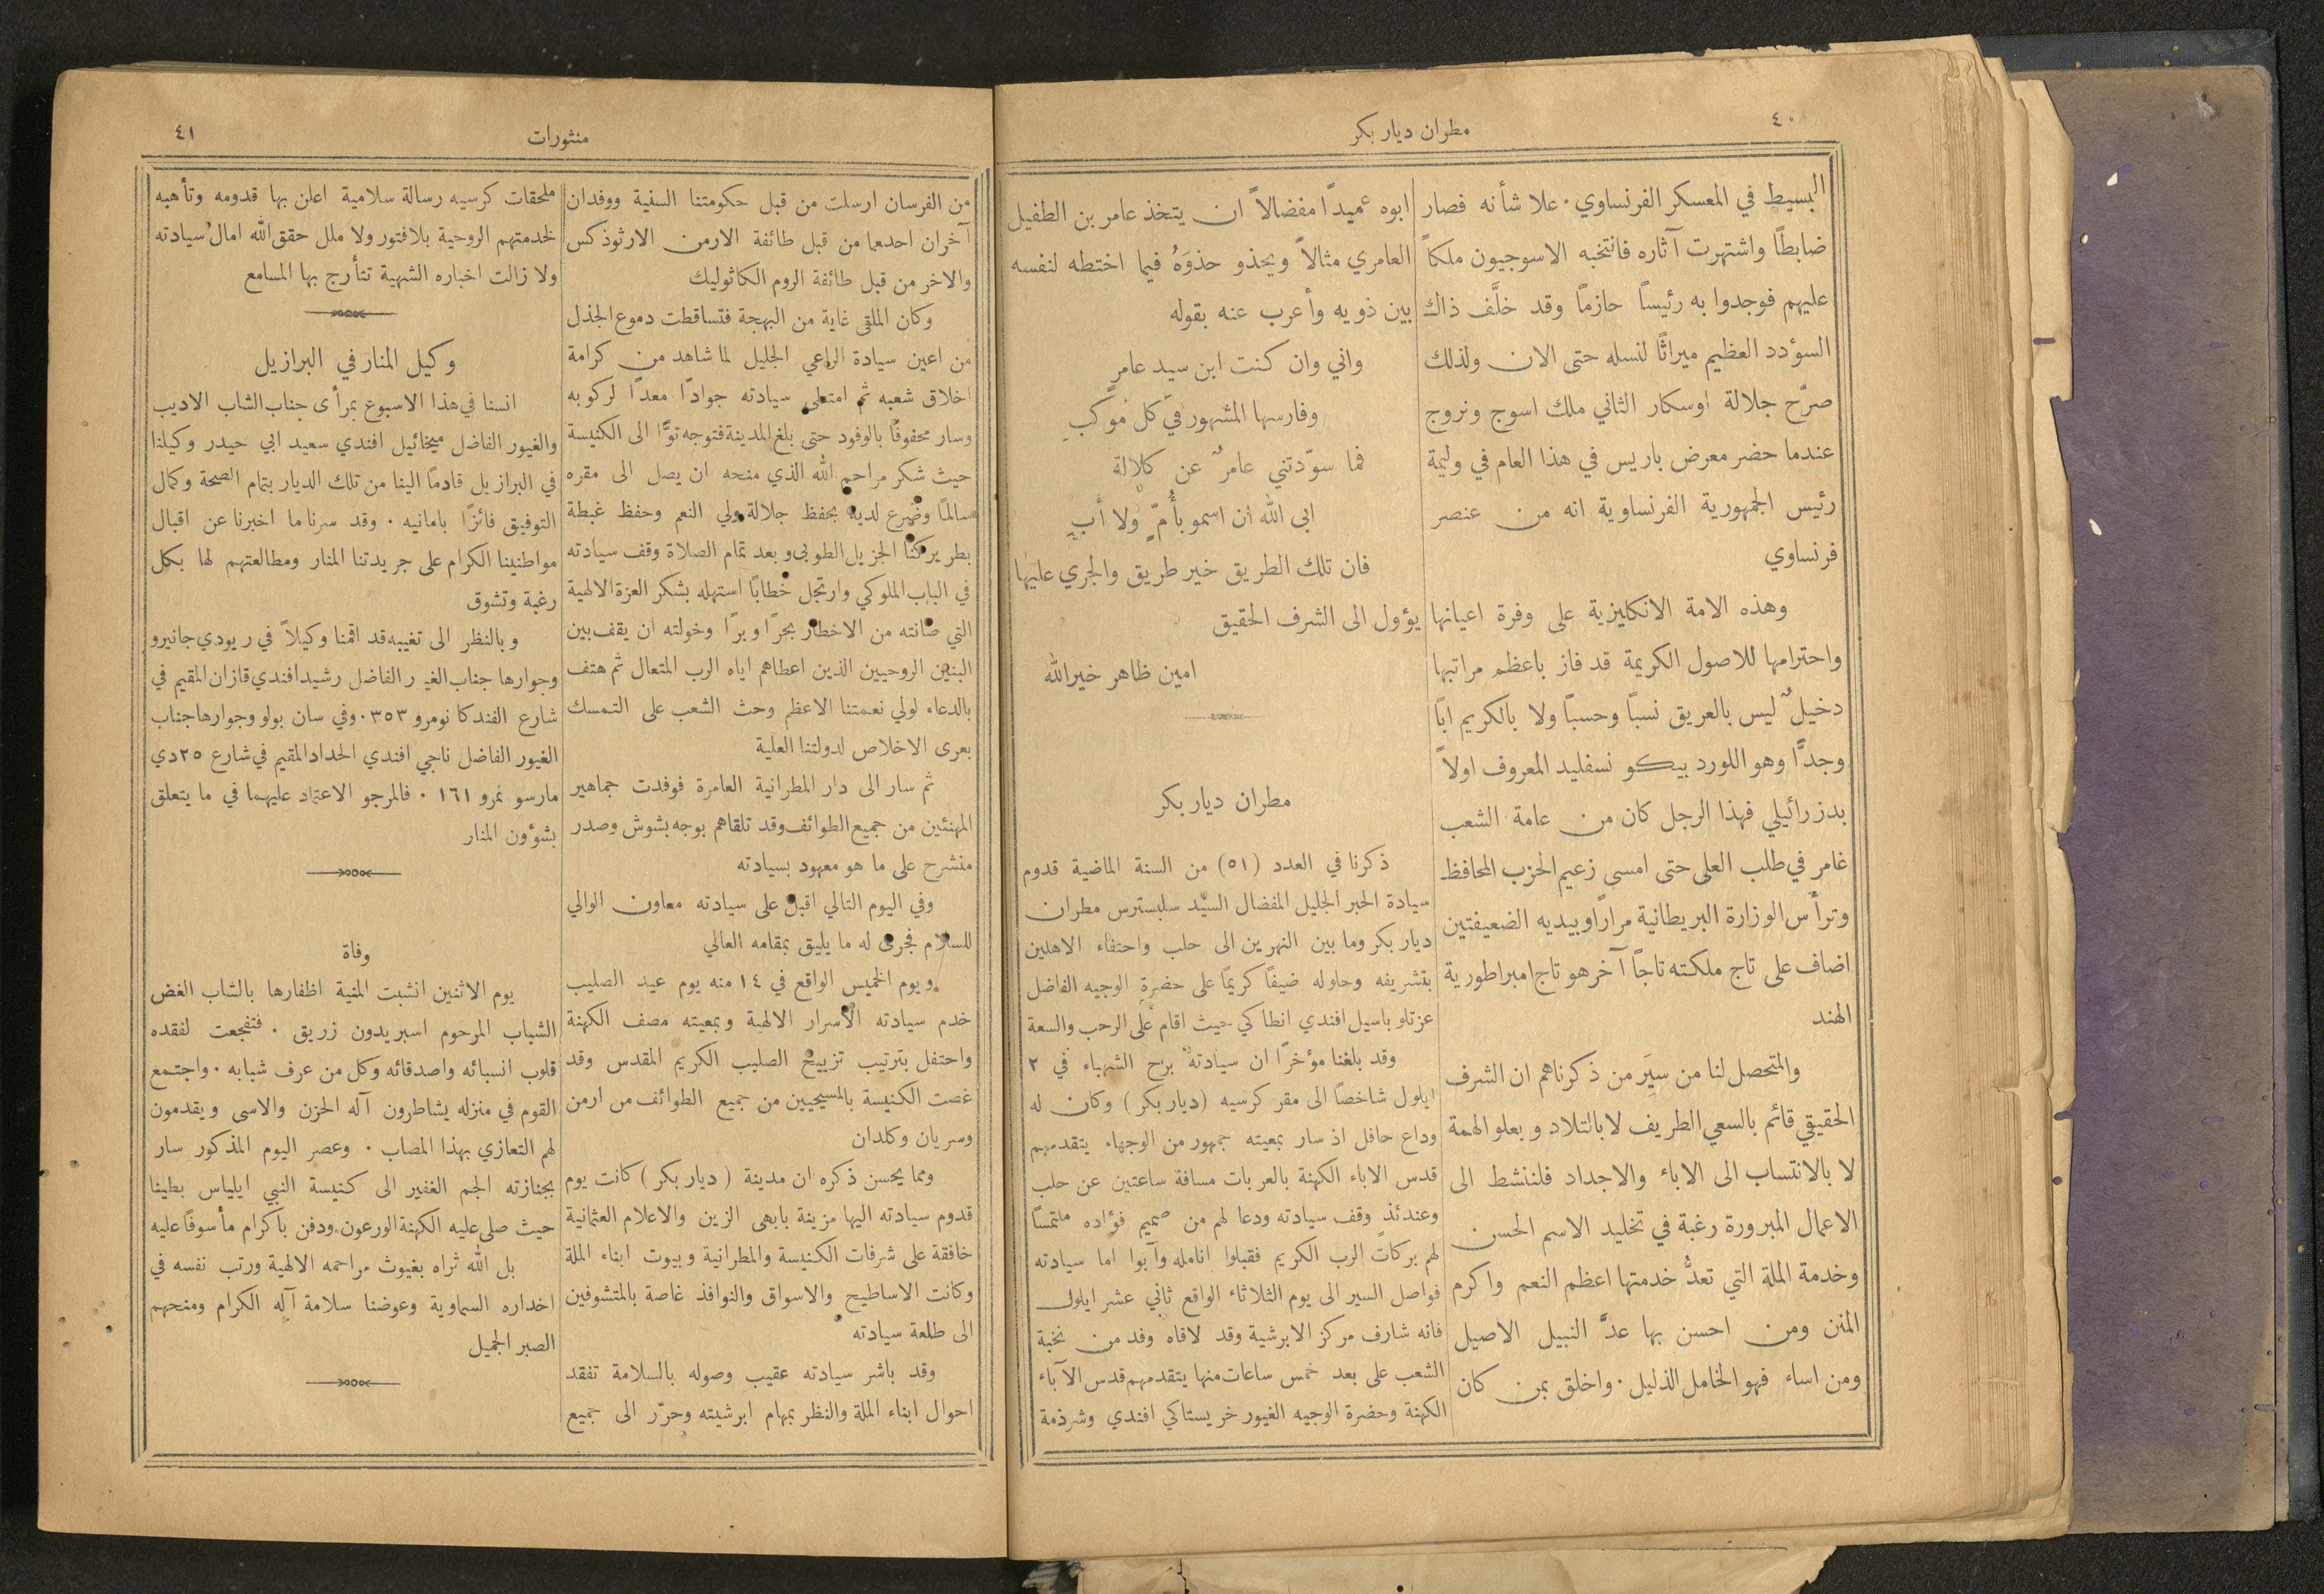 ٤٠
مطران ديار بكر
البسيط في المعسكر الفرنساوي. علا شأنه فصار
ضابطًا واشتهرت آثاره فانتخبه الاسوجيون ملكاً
عليهم فوجدوا به رئيسًا حازمًا وقد خلَّف ذاك
السؤدد العظيم ميراثًا لنسله حتى الان ولذلك
صرّح جلالة اوسكار الثاني ملك اسوج ونروج
عندما حضر معرض باريس في هذا العام في وليمة
رئيس الجمهورية الفرنساوية انه من عنصر
فرنساوي
وهذه الامة الانكليزية على وفرة اعيانها
واحترامها للاصول الكريمة قد فاز باعظم مراتبها
دخيلٌ ليس بالعريق نسبًا وحسبًا ولا بالكريم ابًا
وجدًّا وهو اللورد بيكو نسفليد المعروف اولاً
بدزرائيلي فهذا الرجل كان من عامة الشعب
غامر في طلب العلى حتى امسى زعيم الحزب المحافظ
وترأس الوزارة البريطانية مرارًا وبيديه الضعيفتين
اضاف على تاج ملكته تاجًا آخر هو تاج امبراطورية
الهند
والمتحصل لنا من سيَر من ذكرناهم ان الشرف
الحقيقي قائم بالسعي الطريف لا بالتلاد وبعلو الهمة
لا بالانتساب الى الاباء والاجداد فلننشط الى
الاعمال المبرورة رغبة في تخليد الاسم الحسن
وخدمة الملة التي تعدُّ خدمتها اعظم النعم واكرم
المنن ومن احسن بها عدَّ النبيل الاصيل
ومن اساء فهو الخامل الذليل. واخلق بمن كان
ابوه عميداً مفضالاً ان يتخذ عامر بن الطفيل
العامري مثالاً ويحذو حذوَهُ فيما اختطه لنفسه
بين ذويه وأعرب عنه بقوله
واني وان كنت ابن سيد عامرٍ
وفارسها المشهور في كل موكبِ
فما سوّدتني عامرٌ عن كلالة
ابى الله ان اسمو بأُمّ ولا أَبِ
فان تلك الطريق خير طريق والجري عليها
يؤول الى الشرف الحقيق
امين ظاهر خيرالله
مطران ديار بكر
ذكرنا في العدد (٥١) من السنة الماضية قدوم
سيادة الحبر الجليل المفضال السيّد سلبسترس مطران
ديار بكر وما بين النهرين الى حلب واحتفاء الاهلين
بتشريفه وحلوله ضيفًا كريمًا على حضرة الوجيه الفاضل
عزتلو باسيل افندي انطاكي حيث اقام على الرحب والسعة
وقد بلغنا مؤخرًا ان سيادته برح الشهباء في ٢
ايلول شاخصًا الى مقر كرسيه (ديار بكر) وكان له
وداع حافل اذ سار بمعيته جمهور من الوجهاء يتقدمهم
قدس الاباء الكهنة بالعربات مسافة ساعتين عن حلب
وعندئذ وقف سيادته ودعا لهم من صميم فؤاده ملتمسًا
لهم بركات الرب الكريم فقبلوا انامله وآبوا اما سيادته
فواصل السير الى يوم الثلاثاء الواقع ثاني عشر ايلول
فانه شارف مركز الابرشية وقد لاقاه وفد من نخبة
الشعب على بعد خمس ساعات منها يتقدمهم قدس الآباء
الكهنة وحضرة الوجيه الغيور خريستاكي افندي وشرذمة
منثورات
٤١
من الفرسان ارسلت من قبل حكومتنا السنية ووفدان
آخران احدهما من قبل طائفة الارمن الارثوذكس
والاخر من قبل طائفة الروم الكاثوليك
وكان الملتقى غاية من البهجة فتساقطت دموع الجذل
من اعين سيادة الراعي الجليل لما شاهد من كرامة
اخلاق شعبه ثم امتطى سيادته جوادًا معدًا لركوبه
وسار محفوفًا بالوفود حتى بلغ المدينة فتوجه توًّا الى الكنيسة
حيث شكر مراحم الله الذي منحه ان يصل الى مقره
سالمًا وضرع لديه بحفظ جلالة ولي النعم وحفظ غبطة
بطريركنا الجزيل الطوبى وبعد تمام الصلاة وقف سيادته
في الباب الملوكي وارتجل خطابًا استهله بشكر العزة الالهية
التي صانته من الاخطار بحرًا وبرًا وخولته ان يقف بين
البنين الروحيين الذين اعطاهم اياه الرب المتعال ثم هتف
بالدعاء لولي نعمتنا الاعظم وحث الشعب على التمسك
بعرى الاخلاص لدولتنا العلية
ثم سار الى دار المطرانية العامرة فوفدت جماهير
المهنئين من جميع الطوائف وقد تلقاهم بوجه بشوش وصدر
منشرح على ما هو معهود بسيادته
وفي اليوم التالي اقبل على سيادته معاون الوالي
للسلام فجرى له ما يليق بمقامه العالي
ويوم الخميس الواقع في ١٤ منه يوم عيد الصليب
خدم سيادته الاسرار الالهية وبمعيته مصف الكهنة
واحتفل بترتيب تزييح الصليب الكريم المقدس وقد
غصت الكنيسة بالمسيحيين من جميع الطوائف من ارمن
وسريان وكلدان
ومما يحسن ذكره ان مدينة (ديار بكر) كانت يوم
قدوم سيادته اليها مزينة بابهى الزين والاعلام العثمانية
خافقة على شرفات الكنيسة والمطرانية وبيوت ابناء الملة
وكانت الاساطيح والاسواق والنوافذ غاصة بالمتشوفين
الى طلعة سيادته
وقد باشر سيادته عقيب وصوله بالسلامة تفقد
احوال ابناء الملة والنظر بمهام ابرشيته وحرّر الى جميع
ملحقات كرسيه رسالة سلامية اعلن بها قدومه وتأهبه
لخدمتهم الروحية بلا فتور ولا ملل حقق الله امال سيادته
ولا زالت اخباره الشهية تتأرج بها المسامع
وكيل المنار في البرازيل
انسنا في هذا الاسبوع بمرأى جناب الشاب الاديب
والغيور الفاضل ميخائيل افندي سعيد ابي حيدر وكيلنا
في البرازيل قادمًا الينا من تلك الديار بتمام الصحة وكمال
التوفيق فائزًا بامانيه. وقد سرنا ما اخبرنا عن اقبال
مواطنينا الكرام على جريدتنا المنار ومطالعتهم لها بكل
رغبة وتشوق
وبالنظر الى تغيبه قد اقمنا وكيلاً في ريودي جانيرو
وجوارها جناب الغيور الفاضل رشيد افندي قازان المقيم في
شارع الفندكا نومرو ٣٥٣. وفي سان بولو وجوارها جناب
الغيور الفاضل ناجي افندي الحداد المقيم في شارع ٢٥ دي
مارسو نمرو ١٦١. فالمرجو الاعتماد عليهما في ما يتعلق
بشؤون المنار
وفاة
يوم الاثنين انشبت المنية اظفارها بالشاب الغض
الشباب المرحوم اسبريدون زريق. فتفجعت لفقده
قلوب انسبائه واصدقائه وكل من عرف شبابه. واجتمع
القوم في منزله يشاطرون آله الحزن والاسى ويقدمون
لهم التعازي بهذا المصاب. وعصر اليوم المذكور سار
بجنازته الجم الغفير الى كنيسة النبي ايلياس بطينا
حيث صلى عليه الكهنة الورعون ودفن باكرام مأسوفًا عليه
بل الله ثراه بغيوث مراحمه الالهية ورتب نفسه في
اخداره السماوية وعوضنا سلامة آله الكرام ومنحهم
الصبر الجميل